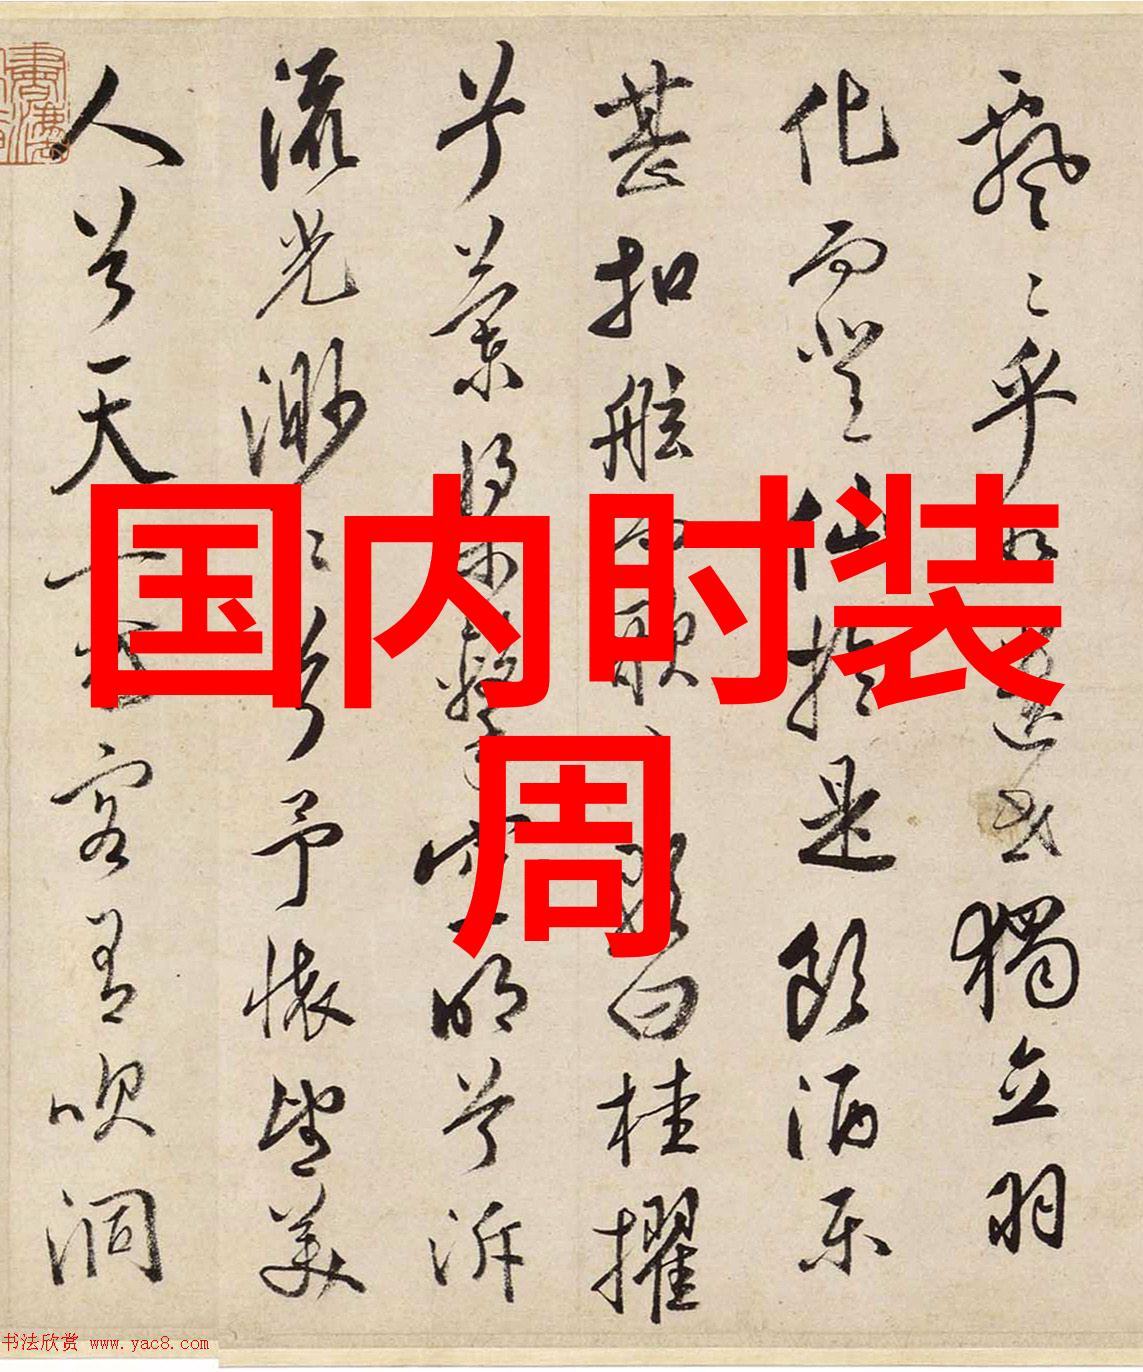 飄〻乎如遺世獨立羽
化而登仙於是飲酒樂
甚扣舷而歌之歌曰桂擢
兮蘭槳擊空明兮泝
流光渺〻兮予懷望美
人兮天一方客有吹洞
国内时装
周
书法欣赏 www.yac8.com